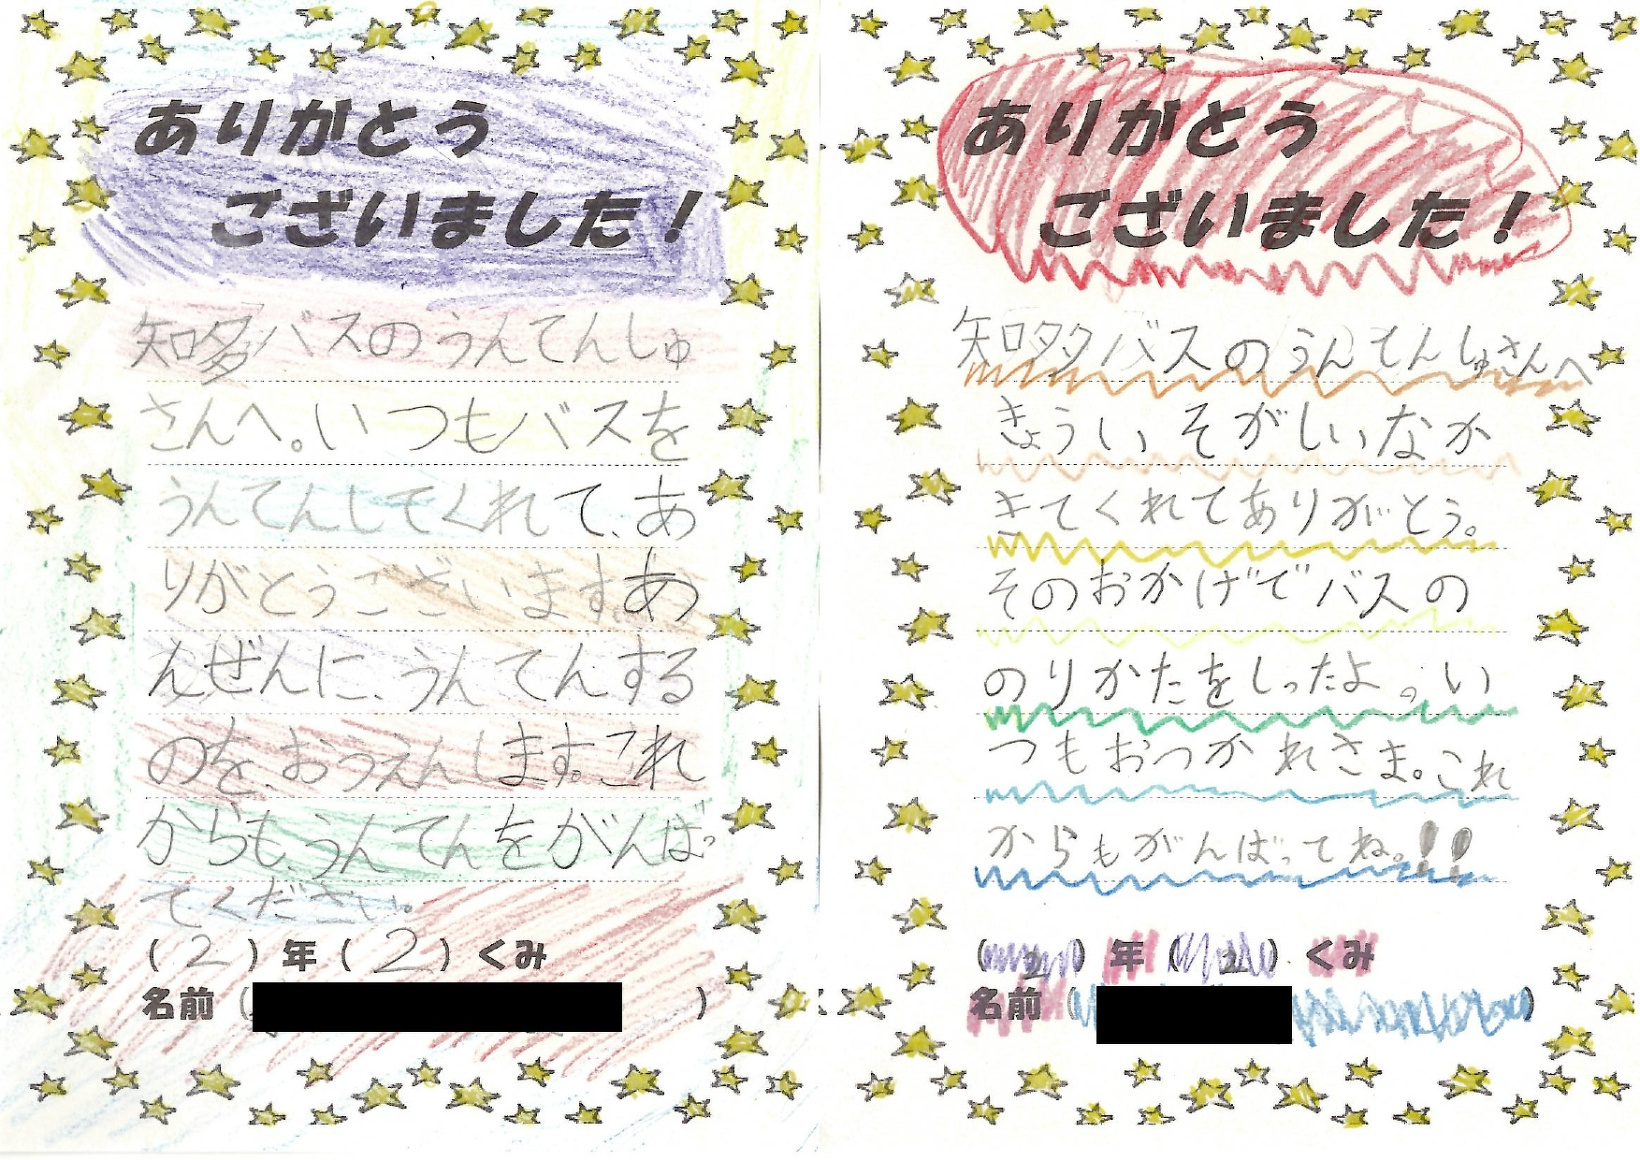 ありがとう
ございました！
知多バスのうんてんしゅ
さんへ。いつもバスを
うんてんしてくれて、あ
りがとうございます。あ
んぜんに、うんてんする
のを、おうえんします。これ
からも、うんてんをがんばっ
てください。
(2)年(2)くみ
名前( )
ありがとう
ございました！
知多バスのうんてんしゅさんへ
きょういそがしいなか
きてくれてありがとう。
そのおかげでバスの
のりかたをしったよ。い
つもおつかれさま。これ
からもがんばってね。!!
(2)年(2)くみ
名前( )